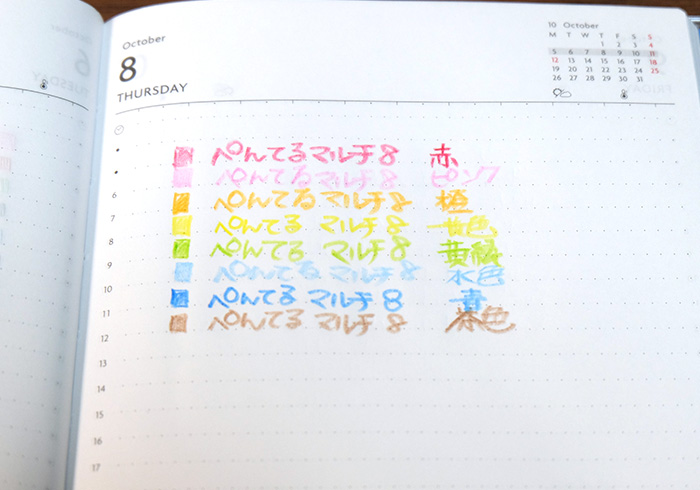 October
8
THURSDAY
10 October
M T W T F S S
1 2 3 4
5 6 7 8 9 10 11
12 13 14 15 16 17 18
19 20 21 22 23 24 25
26 27 28 29 30 31
ぺんてるマルチ8 赤
ぺんてるマルチ8 ピンク
6 ぺんてるマルチ8 橙
7 ぺんてる マルチ8 黄色
8 ぺんてる マルチ8 黄緑
9 ぺんてる マルチ8 水色
10 ぺんてる マルチ8 青
11 ぺんてる マルチ8 茶色
12
13
14
15
16
17